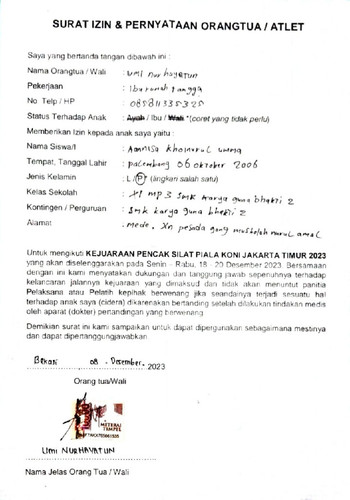 SURAT IZIN & PERNYATAAN ORANGTUA / ATLET
Saya yang bertanda tangan dibawah ini :
Nama Orangtua / Wali : umi nurhayatun
Pekerjaan : Ibu rumah tangga
No. Telp / HP : 085811335325
Status Terhadap Anak : Ayah / Ibu / Wali *(coret yang tidak perlu)
Memberikan Izin kepada anak saya yaitu :
Nama Siswa/I : Annisa Khoirurul umma
Tempat, Tanggal Lahir : palembang 06 oktober 2006
Jenis Kelamin : L / P (lingkari salah satu)
Kelas Sekolah : XI mp 3 smk karya guna bhakti 2
Kontingen / Perguruan : Smk karya guna bhakti 2
Alamat : gang mussolah nurul amal
Untuk mengikuti KEJUARAAN PENCAK SILAT PIALA KONI JAKARTA TIMUR 2023
yang akan diselenggarakan pada Senin - Rabu, 18 - 20 Desember 2023. Bersamaan
dengan ini kami menyatakan dukungan dan tanggung jawab sepenuhnya terhadap
kelancaran jalannya kejuaraan yang dimaksud dan tidak akan menuntut panitia
Pelaksana atau Pelatih kepihak berwenang jika seandainya terjadi sesuatu hal
terhadap anak saya (cidera) dikarenakan bertanding setelah dilakukan tindakan medis
oleh aparat (dokter) penandingan yang berwenang
Demikian surat ini kami sampaikan untuk dapat dipergunakan sebagaimana mestinya
dan dapat dipertanggungjawabkan
Bekasi 08 - Desember - 2023
Orang tua/Wali
METERAI
TEMPEL
UMI NURHAYATUN
Nama Jelas Orang Tua / Wali